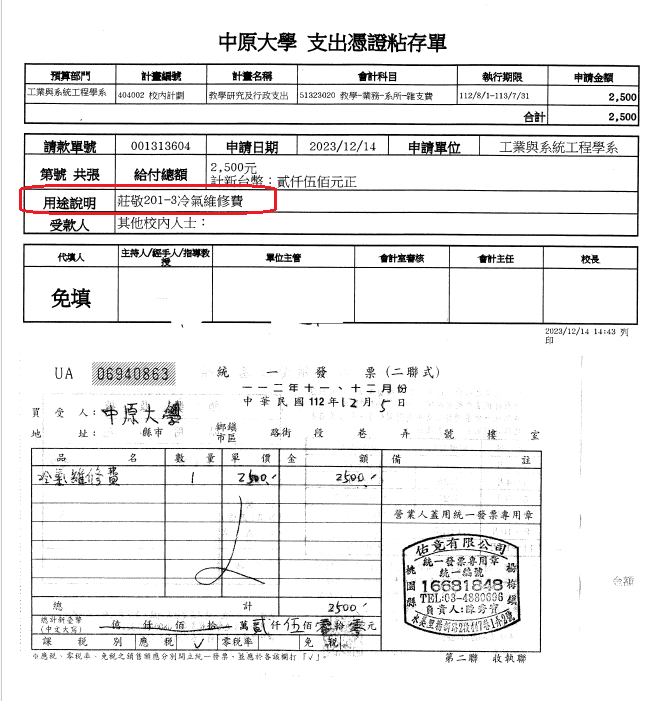 中原大學 支出憑證粘存單
預算部門 計畫編號 計畫名稱 會計科目 執行期限 申請金額
工業與系統工程學系 404002 校內計劃 教學研究及行政支出 51323020 教學-業務-系所-雜支費 112/8/1-113/7/31 2,500
合計 2,500
請款單號 001313604 申請日期 2023/12/14 申請單位 工業與系統工程學系
第號 共張 給付總額 2,500元
計新台幣：貳仟伍佰元正
用途說明 莊敬201-3冷氣維修費
受款人 其他校內人士：
代填人 主持人/經手人/指導教授 單位主管 會計室審核 會計主任 校長
免填
2023/12/14 14:43 列印
UA 06940863 統一發票(二聯式)
一一二年十一、十二月份
中華民國112年12月5日
買受人：中原大學
地址： 縣市 鄉鎮市區 路街 段 巷 弄 號 樓 室
品名 數量 單價 金額 備註
冷氣維修費 1 2500 2500
營業人蓋用統一發票專用章
佑竟有限公司
統一發票專用章
統一編號
16681848
TEL:03-4880696
桃園縣 楊梅鎮
總計 2500
總計新臺幣
(中文大寫) 億 仟 佰 拾 萬 貳仟伍佰零拾零元
課稅別 應稅 ✓ 零稅率 免稅
※應稅、零稅率、免稅之銷售額應分別開立統一發票，並應於各該欄打「✓」。
第二聯 收執聯